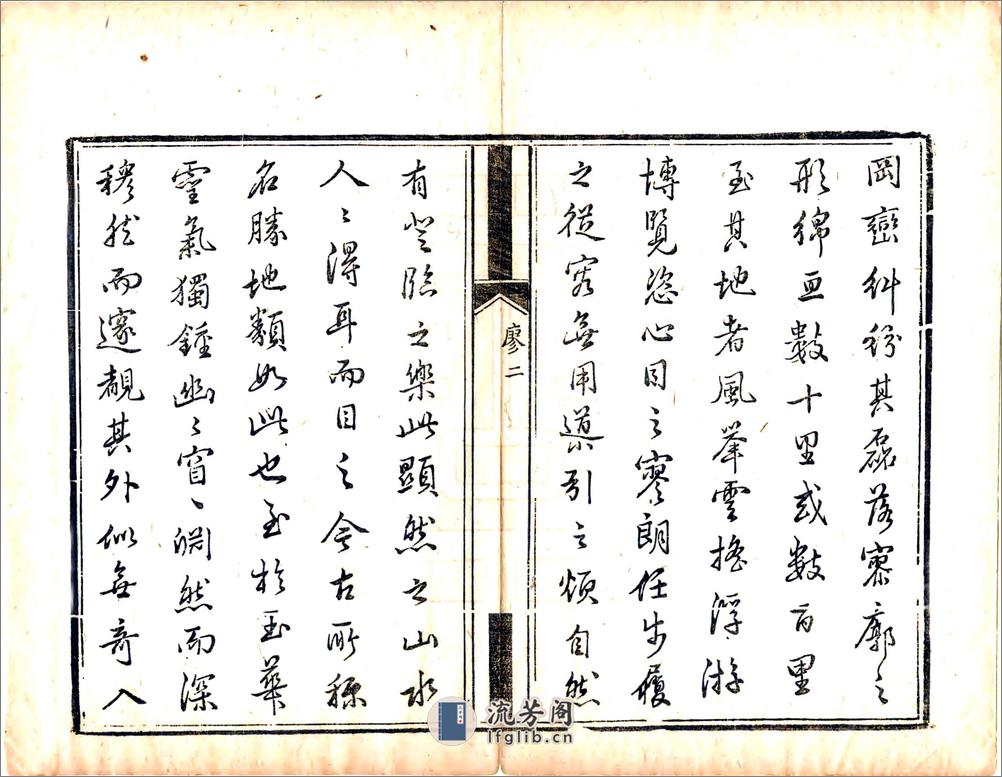 岡巒糾紛其磊落寥廓之
形綿亘數十里或數百里
至其地者風舉雲搖浮游
博覽恣心目之寥朗任步履
之從容無用導引之煩自然
廖二
有登臨之樂此顯然之山水
人〻得耳而目之今古所稱
名勝地類如此也至於玉華
靈氣獨鍾幽〻窅〻閟然而深
穆然而邃覩其外似無奇入
流芳阁
lfglib.cn